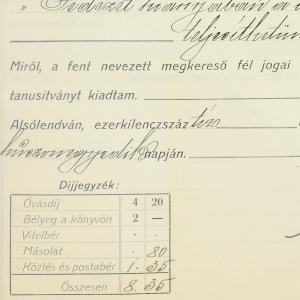 " Fedezet hiányában a
teljesíthetün
Miről, a fent nevezett megkereső fél jogai
tanusitványt kiadtam.
Alsólendván, ezerkilenczszáz tiz
huszonnegyedik napján.
Dijjegyzék:
Óvásdíj 4 20
Bélyeg a könyvön 2 —
Vitelbér . .
Másolat . 80
Közlés és postabér 1. 35
Összesen 8. 35